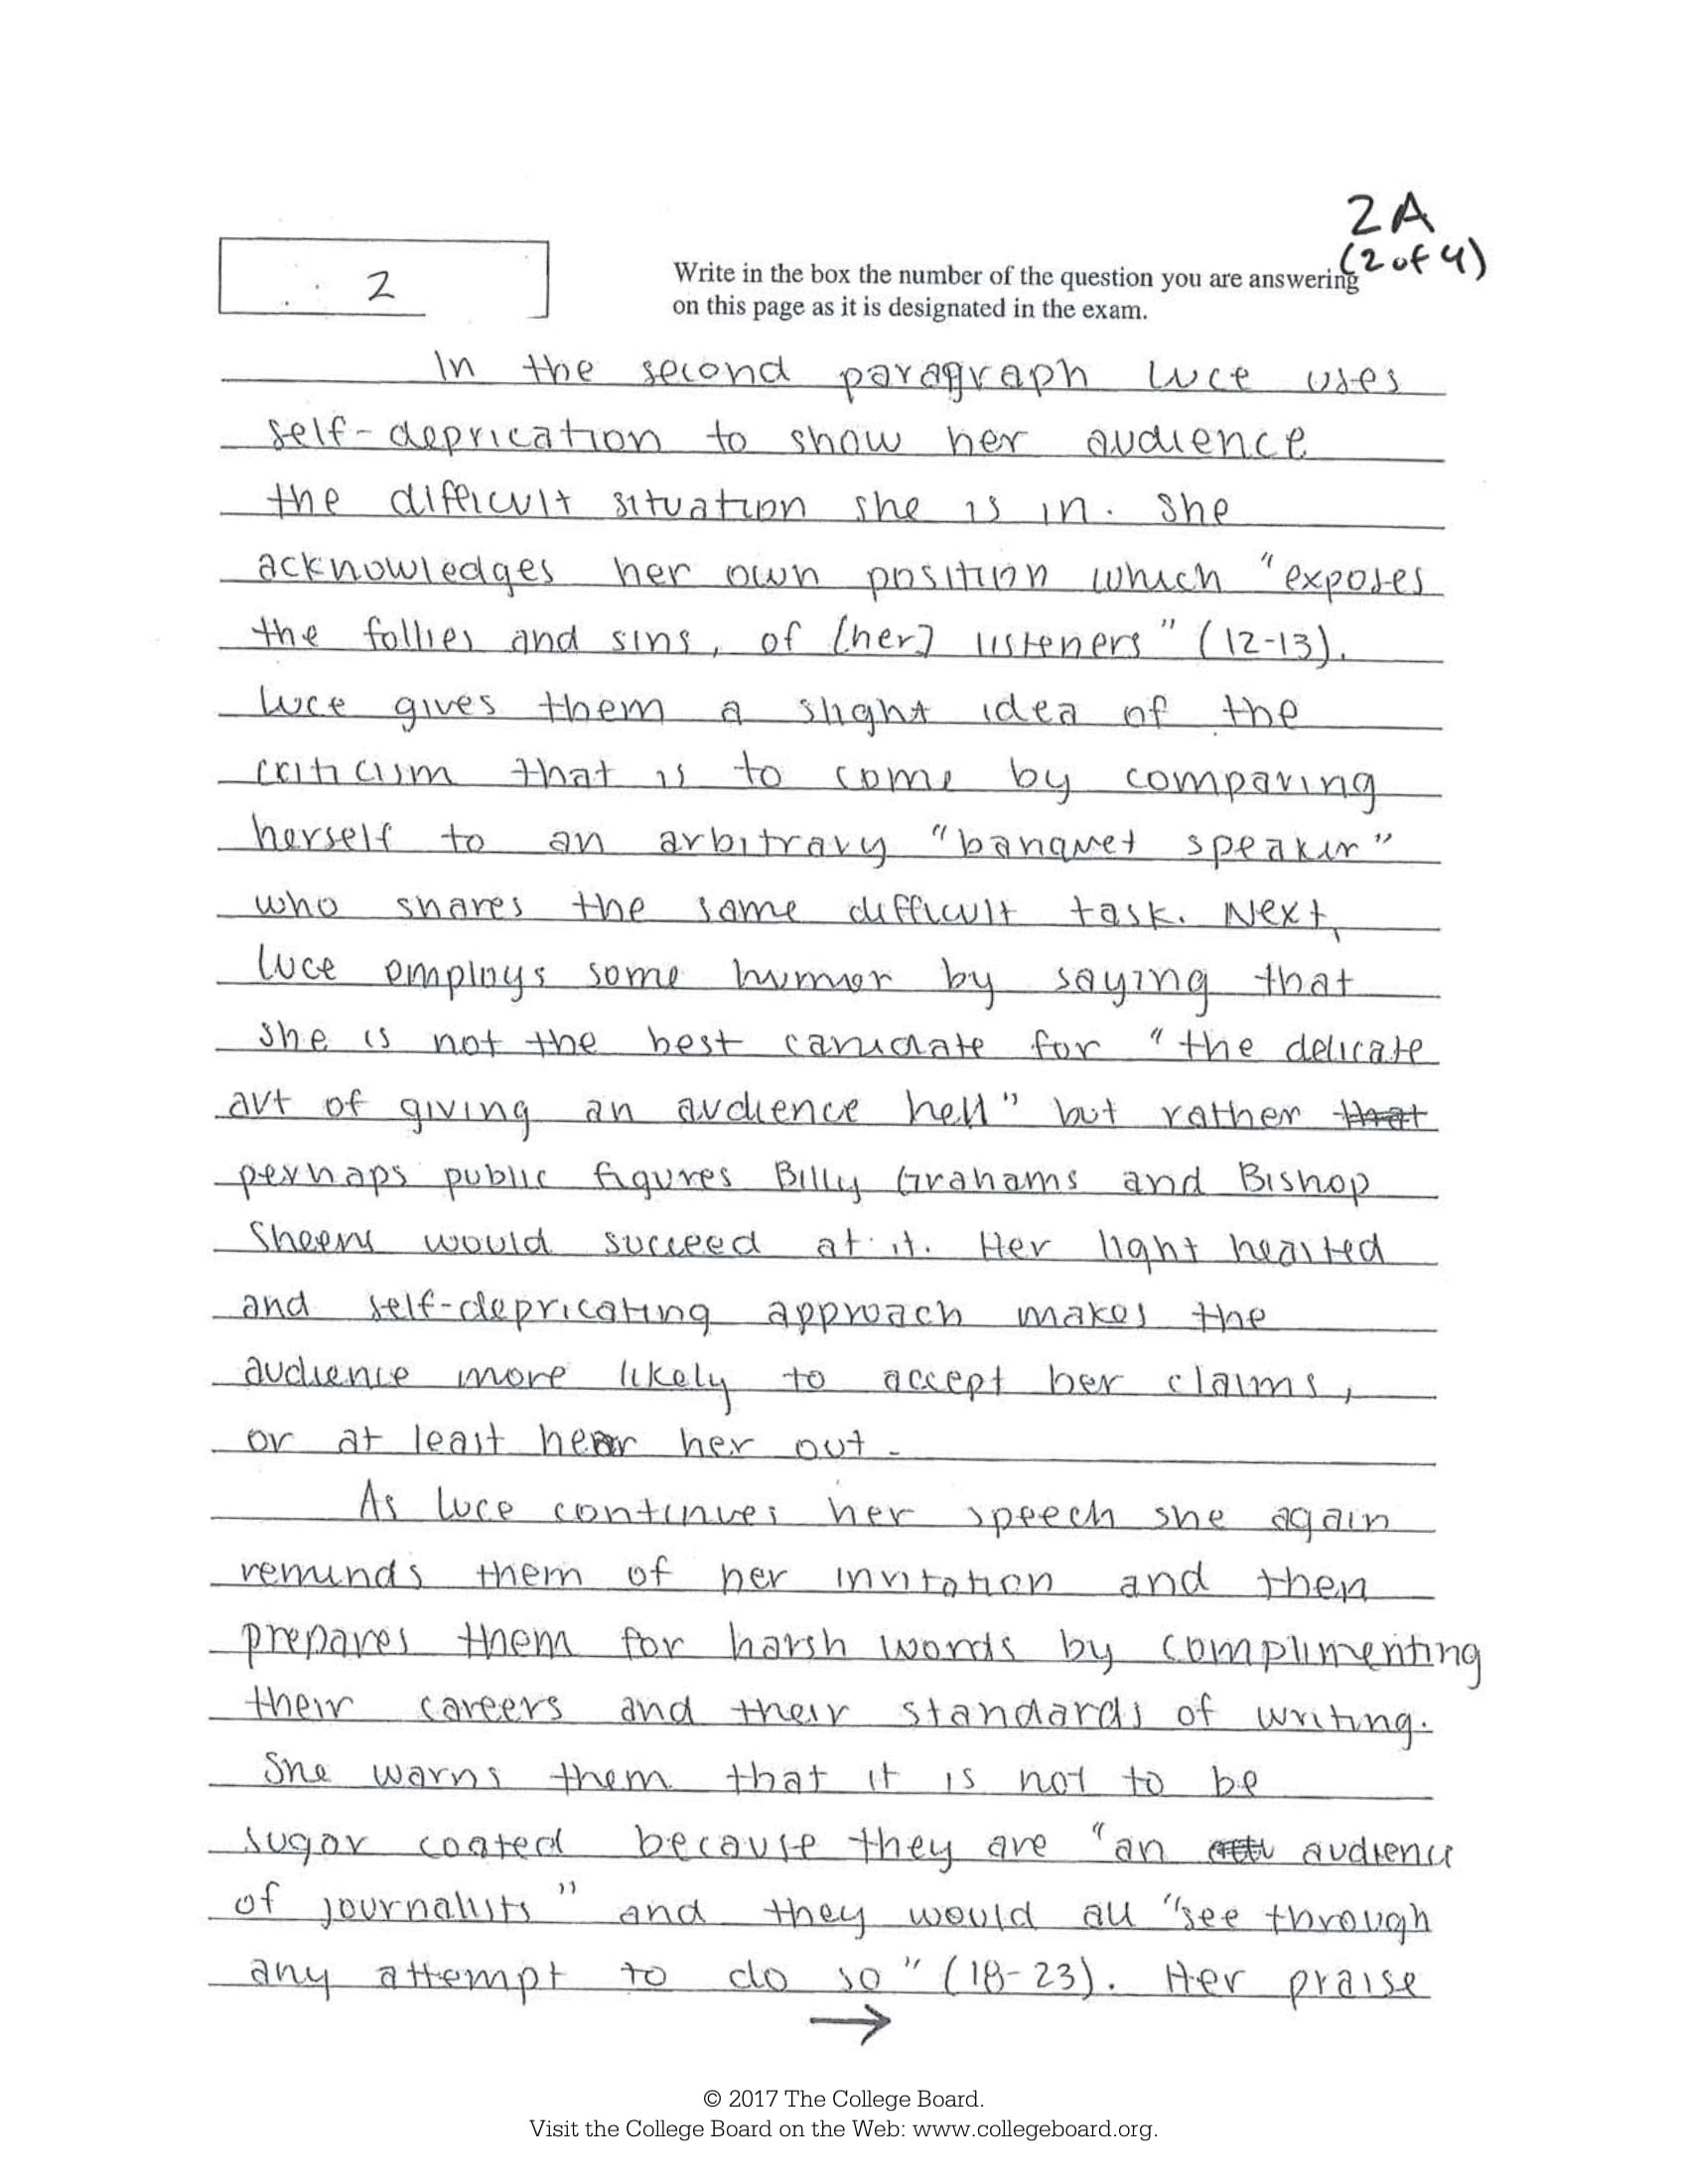 2A
(2 of 4)
2
Write in the box the number of the question you are answering
on this page as it is designated in the exam.
In the second paragraph Luce uses
self-deprication to show her audience
the difficult situation she is in. She
acknowledges her own position which "exposes
the follies and sins, of [her] listeners" (12-13).
Luce gives them a slight idea of the
criticism that is to come by comparing
herself to an arbitrary "banquet speaker"
who shares the same difficult task. Next,
Luce employs some humor by saying that
she is not the best canidate for "the delicate
art of giving an audience hell" but rather that
perhaps public figures Billy Grahams and Bishop
Sheens would succeed at it. Her light hearted
and self-depricating approach makes the
audience more likely to accept her claims,
or at least hear her out.
As Luce continues her speech she again
reminds them of her invitation and then
prepares them for harsh words by complimenting
their careers and their standards of writing.
She warns them that it is not to be
sugar coated because they are "an audience
of journalists" and they would all "see through
any attempt to do so" (18-23). Her praise
→
© 2017 The College Board.
Visit the College Board on the Web: www.collegeboard.org.